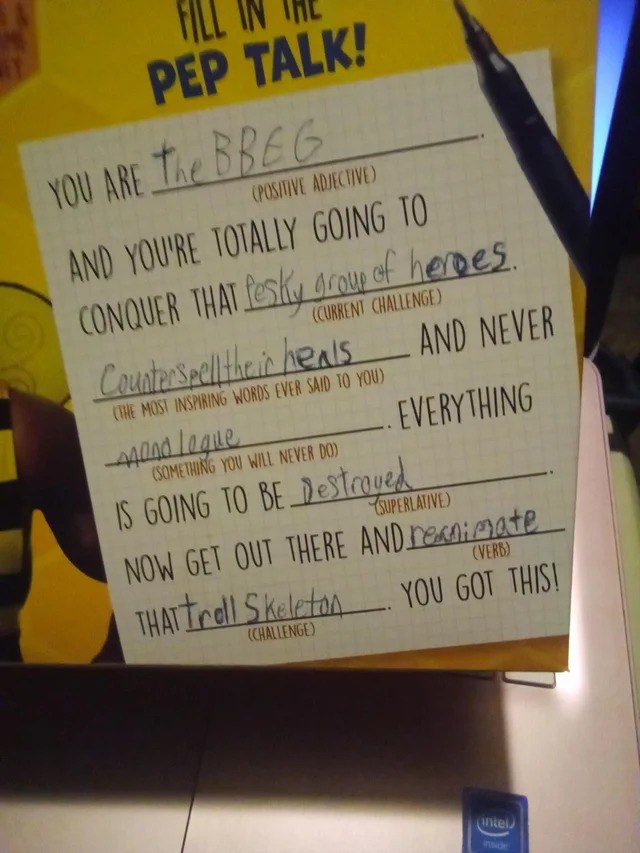 FILL IN THE
PEP TALK!
YOU ARE the BBEG.
(POSITIVE ADJECTIVE)
AND YOU'RE TOTALLY GOING TO
CONQUER THAT Pesky group of heroes.
(CURRENT CHALLENGE)
Counterspell their heals AND NEVER
(THE MOST INSPIRING WORDS EVER SAID TO YOU)
monologue. EVERYTHING
(SOMETHING YOU WILL NEVER DO)
IS GOING TO BE Destroyed.
(SUPERLATIVE)
NOW GET OUT THERE AND reanimate
(VERB)
THAT troll Skeleton. YOU GOT THIS!
(CHALLENGE)
intel
inside